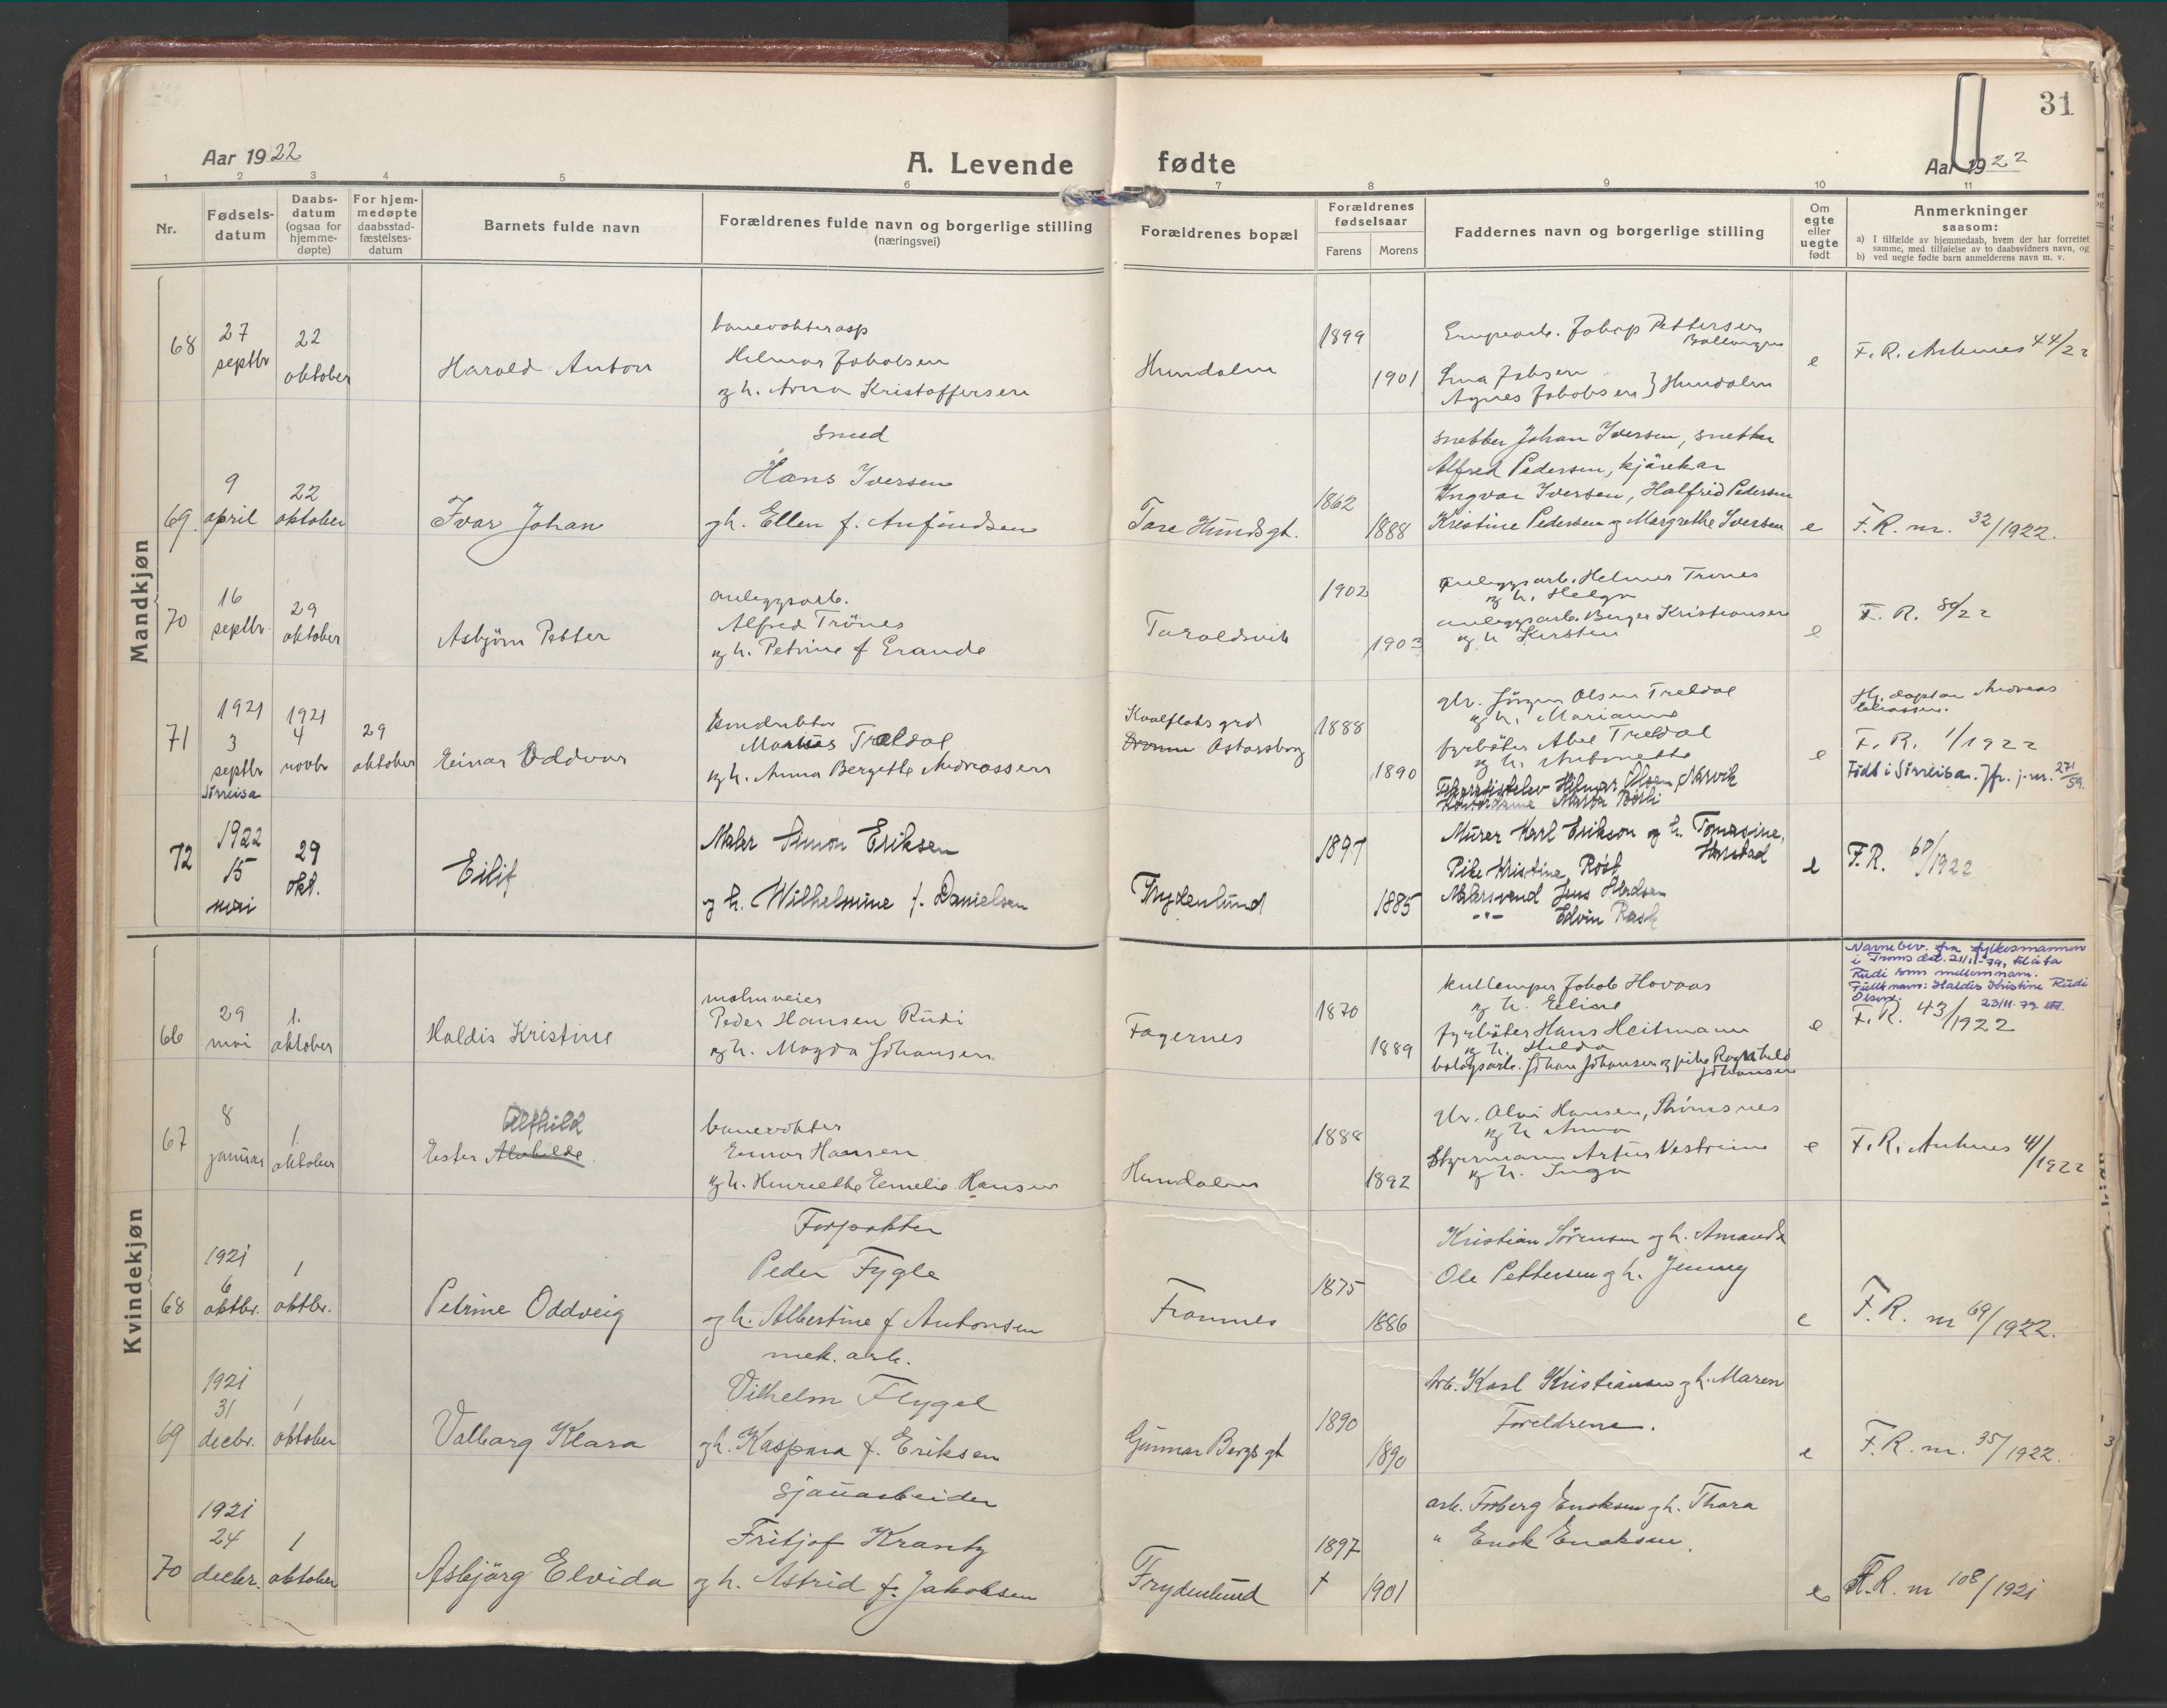 31
Aar 1922
A. Levende fødte
Aar 1922
1 2 3 4 5 6 7 8 9 10 11
Nr.
Fødsels-
datum
Daabs-
datum
(ogsaa for
hjemme-
døpte)
For hjem-
medøpte
daabsstad-
fæstelses-
datum
Barnets fulde navn
Forældrenes fulde navn og borgerlige stilling
(næringsvei)
Forældrenes bopæl
Forældrenes
fødselsaar
Farens Morens
Faddernes navn og borgerlige stilling
Om
egte
eller
uegte
født
Anmerkninger
saasom:
a) I tilfælde av hjemmedaab, hvem der har forrettet
samme, med tilføielse av to daabsvidners navn, og
b) ved uegte fødte barn anmelderens navn m. v.
Mandkjøn
68
27
septbr
22
oktober
Harald Anton
banevokterasp
Helmar Jakobsen
og h. Anna Kristoffersen
Hundalen
1899
1901
Pettersen
Ballangen
Agnes Jakobsen } Hundalen
e
F. R. Ankenes 44/22
69.
9
april
22
oktober
Ivar Johan
Smed
Hans Iversen
og h. Ellen f. Anfindsen
Tore Hunds gt.
1862
1888
snekker Johan Iversen, snekker
Alfred Pedersen, kjørekar
Ingvar Iversen, Halfrid Pedersen
Kristine Pedersen og Margrethe Iversen
e
F. R. nr. 32/1922.
70
16
septbr.
29
oktober
Asbjørn Petter
anleggsarb.
Alfred Trönes
og h. Petrine f Grande
Taraldsvik
1902
1903
anleggsarb. Helmer Trones
og h. Helga
anleggsarb. Birger Kristiansen
og h Kirsten
e
F. R. 80/22
71
1921
3
septbr
Sörreisa
1921
4
novbr
29
oktober
Einar Oddvar
konduktör
Markus Trældal
og h. Anna Bergette Andreassen
Kvalflots grd
Astorsborg
1888
1890
gbr. Jörgen Olsen Treldal
og h. Marianne
fyrböter Abel Treldal
og h. Antonette
Hilmar Olsen, Narvik
Marta
e
Hj. døpt av Andreas
Eliassen.
F. R. 1/1922
Født i Sörreisa. Jfr. j.nr. 271/59.
72
1922
15
mai
29
okt.
Eilif
Maler Simon Eriksen
og h. Wilhelmine f. Danielsen
Frydenlund
1897
1885
Murer Karl Erikson og h. Tomasine,
Harstad
Pike Kristine Røst
Malersvend Jens
-"- Edvin Rask
e
F.R. 60/1922
Kvindekjøn
66
29
mai
1.
oktober
Haldis Kristine
malmveier
Peder Hansen Rudi
og h. Magda Johansen
Fagernes
1870
1889
kullemper Jakob Hovaas
og h. Eline
fyrböter Hans Heitmann
og h. Hilda
bolagsarb. Johan Johansen og pike Ragnhild
Johansen
e
Navnebev. fra fylkesmannen
i Troms dat. 21/11-79, til å ta
Rudi som mellomnavn.
Fullt navn: Haldis Kristine Rudi
Olsen. 23/11.79
F. R. 43/1922
67
8
januar
1.
oktober
Alfhild
Ester Alvhilde
banevokter
Einar Hansen
og h. Henriethe Emelie Hansen
Hundalen
1888
1892
gbr. Hansen,
og h Anna
Styrmann Artur Vestreim
og h. Inga
e
F. R. Ankenes 41/1922
68
1921
6
oktbr.
1
oktbr.
Petrine Oddveig
Forpakter
Peder Fygle
og h. Albertine f Antonsen
Framnes
1875
1886
Kristian Sörensen og h. Amanda
Ole Pettersen og h. Jenny
e
F. R. nr 69/1922.
69
1921
31
decbr.
1
oktober
Valborg Klara
mek. arb.
Vilhelm Flygel
og h. Kaspara f. Eriksen
Gunnar Bergs gt
1890
1890
Arb. Karl Kristiansen og h. Maren
Foreldrene.
e
F. R. nr. 35/1922.
70
1921
24
decbr.
1
oktober
Asbjörg Elvida
sjauarbeider
Fritjof Krantz
og h. Astrid f. Jakobsen
Frydenlund
1897
†
1901
arb. Torberg Enoksen og h. Thora
" Enok Enoksen.
e
F. R. nr 108/1921